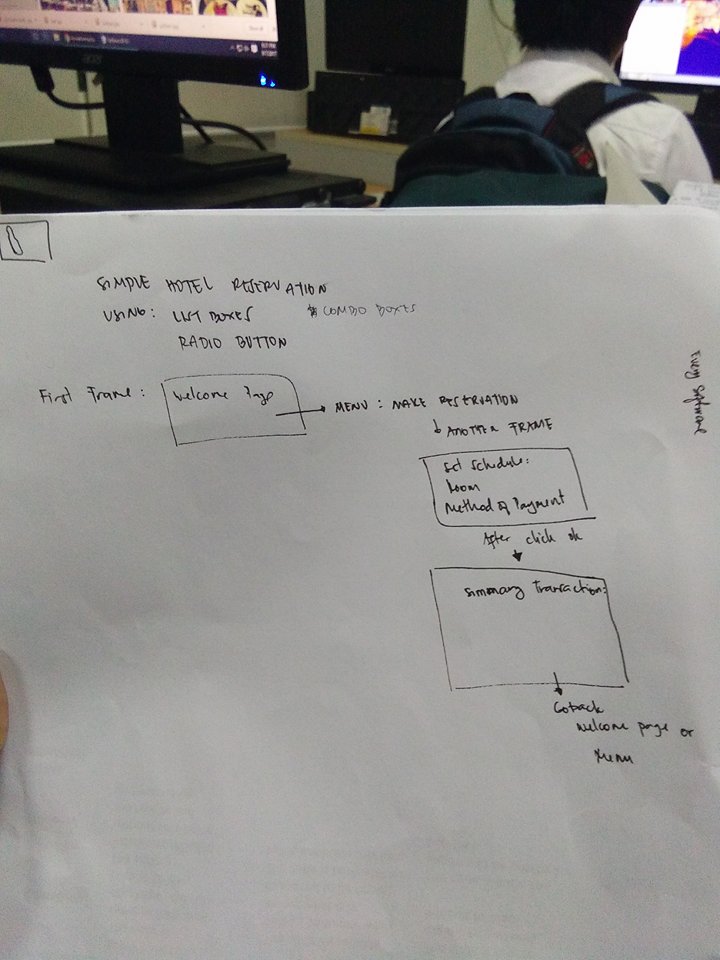 SIMPLE HOTEL RESERVATION
USING: LIST BOXES & COMBO BOXES
RADIO BUTTON
First Frame: Welcome Page
MENU: MAKE RESERVATION
ANOTHER FRAME
Set Schedule:
Room
Method of Payment
After click ok
Summary Transaction:
Goback
welcome page or
Menu
Every Software
acer